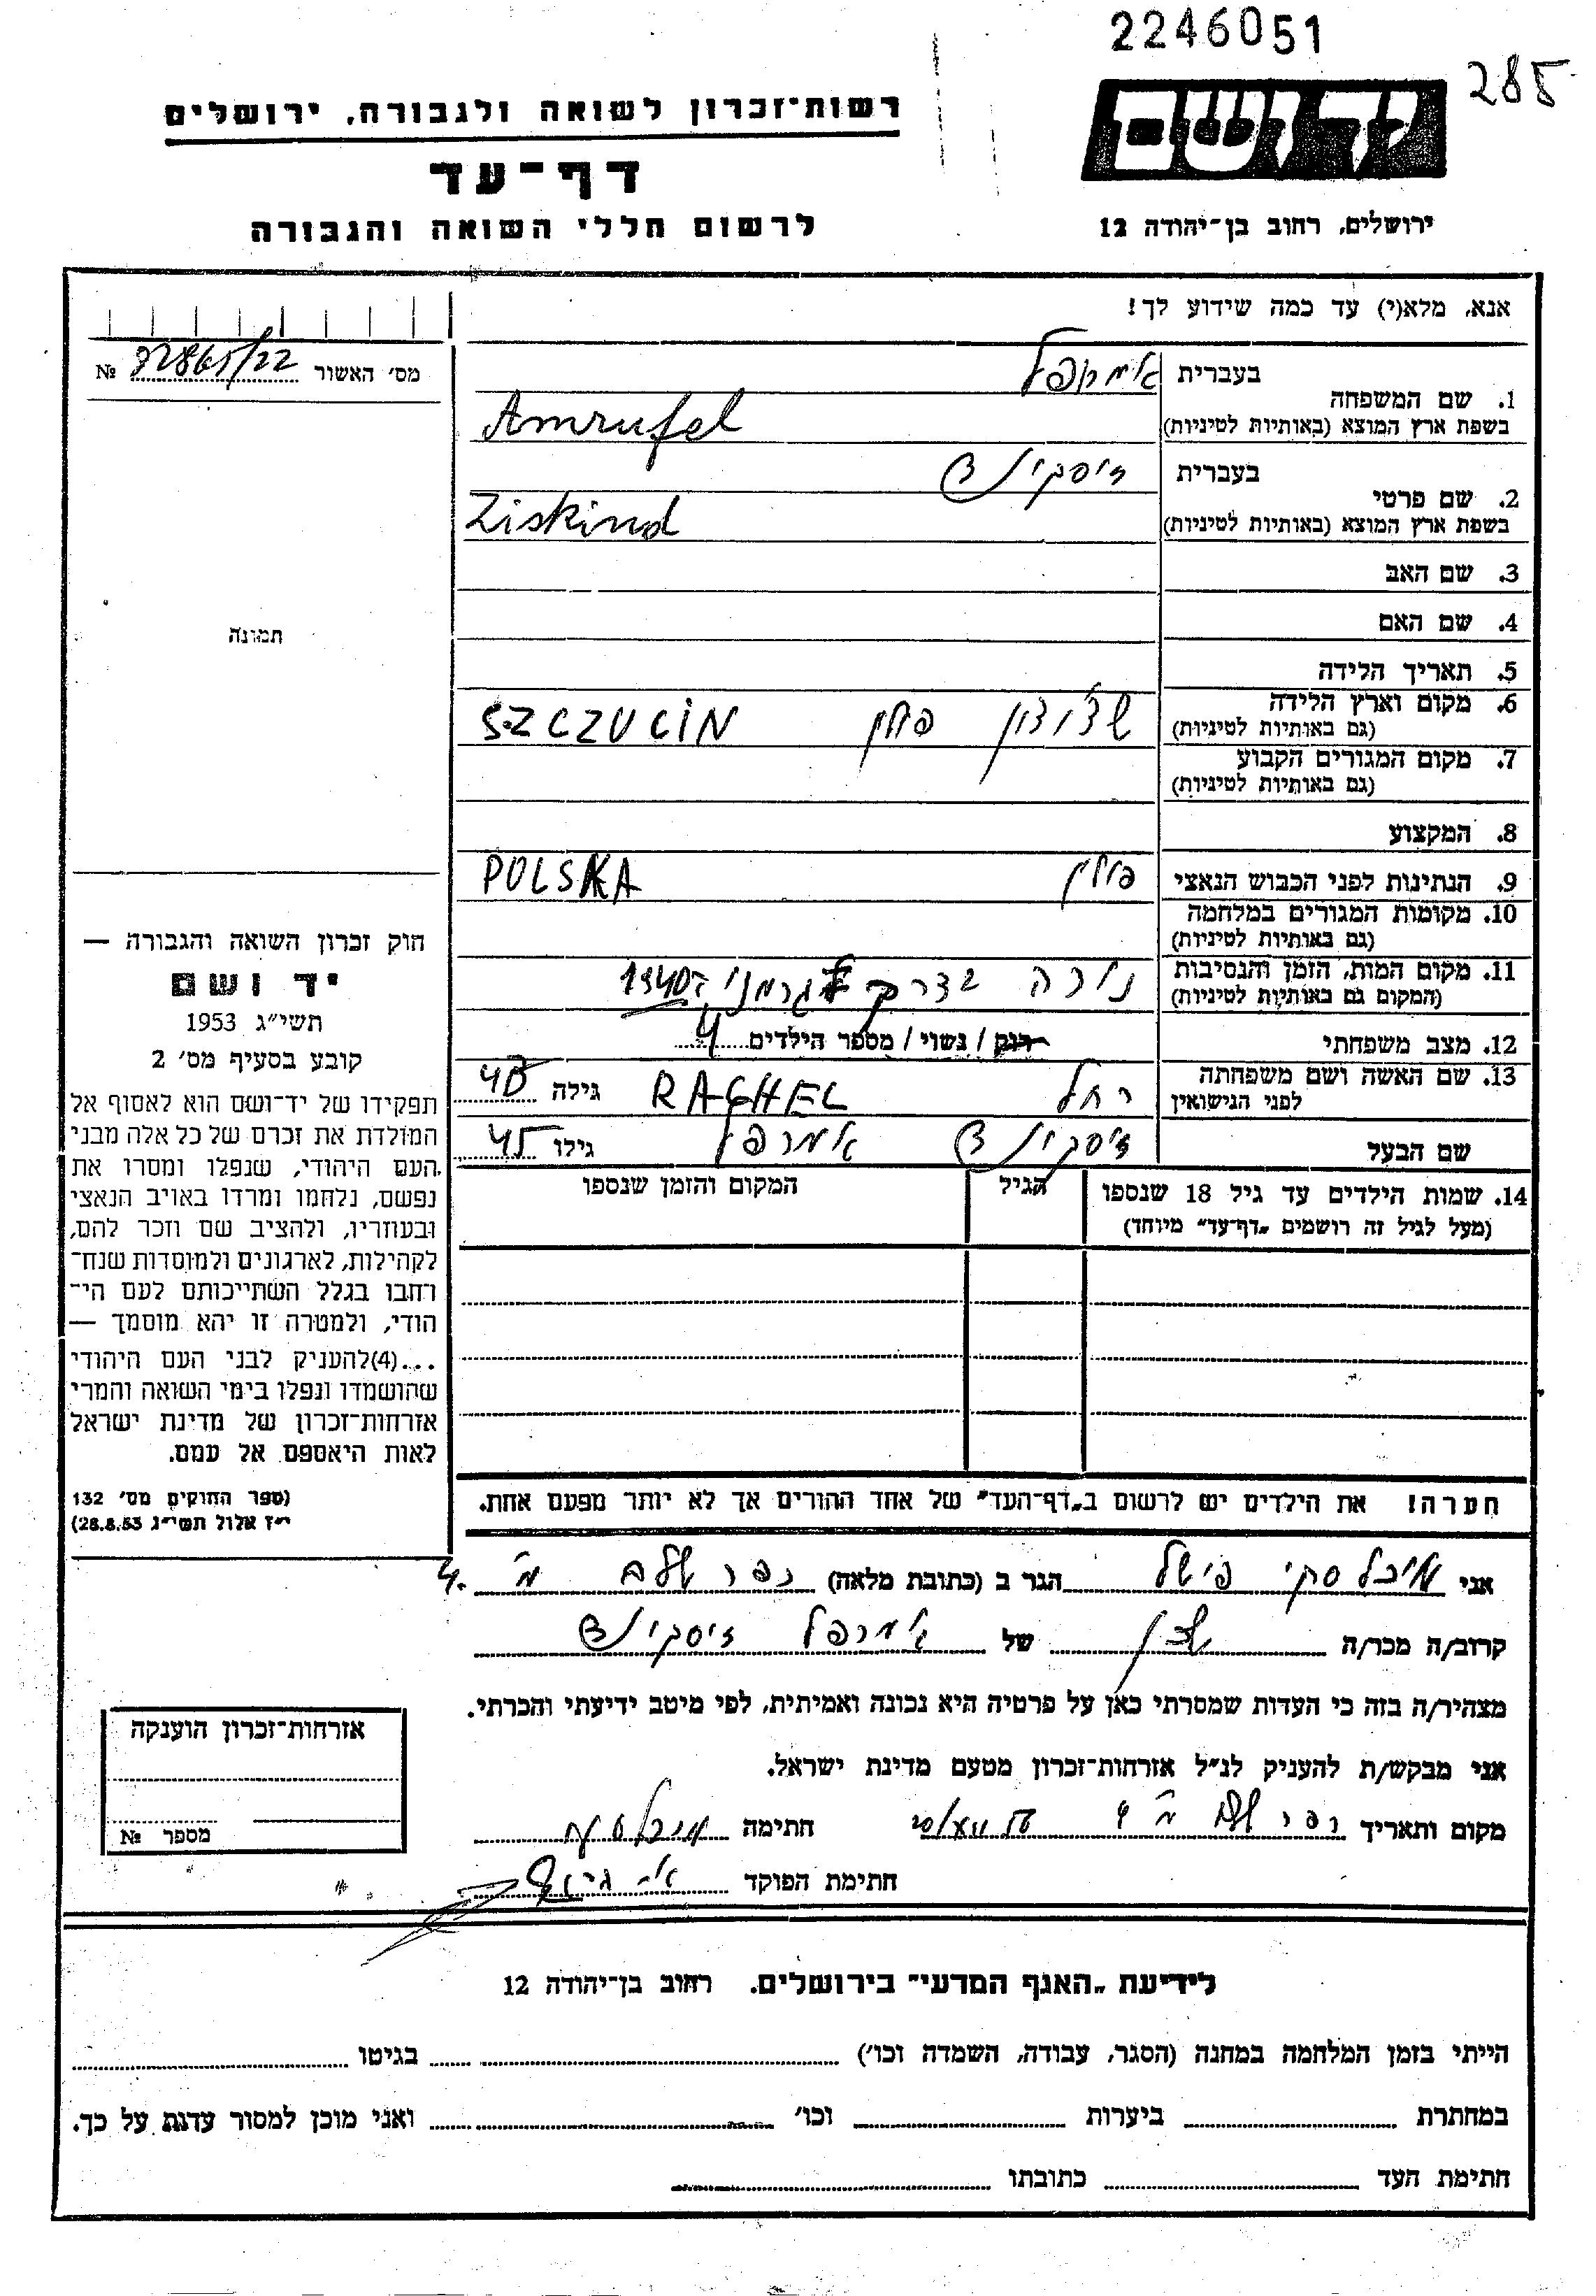 2246051
285
יד ושם
רשות־זכרון לשואה ולגבורה, ירושלים
דף־עד
לרשום חללי השואה והגבורה
ירושלים, רחוב בן־יהודה 12
אנא, מלא(י) עד כמה שידוע לך!
מס׳ האשור 82865/22 №
תמונה
חוק זכרון השואה והגבורה —
יד ושם
תשי״ג 1953
קובע בסעיף מס׳ 2
תפקידו של יד־ושם הוא לאסוף אל
המולדת את זכרם של כל אלה מבני
העם היהודי, שנפלו ומסרו את
נפשם, נלחמו ומרדו באויב הנאצי
ובעוזריו, ולהציב שם וזכר להם,
לקהילות, לארגונים ולמוסדות שנח־
רחבו בגלל השתייכותם לעם הי־
הודי, ולמטרה זו יהא מוסמך —
...(4) להעניק לבני העם היהודי
שהושמדו ונפלו בימי השואה והמרי
אזרחות־זכרון של מדינת ישראל
לאות היאספם אל עמם.
(ספר החוקים מס׳ 132
י״ז אלול תשי״ג 28.8.53)
בעברית אמרופל
1. שם המשפחה
בשפת ארץ המוצא (באותיות לטיניות) Amrufel
בעברית זיסקינד
2. שם פרטי
בשפת ארץ המוצא (באותיות לטיניות) Ziskind
3. שם האב
4. שם האם
5. תאריך הלידה
6. מקום וארץ הלידה
(גם באותיות לטיניות) שצ׳וצין פולין SZCZUCIN
7. מקום המגורים הקבוע
(גם באותיות לטיניות)
8. המקצוע
9. הנתינות לפני הכבוש הנאצי פולין POLSKA
10. מקומות המגורים במלחמה
(גם באותיות לטיניות)
11. מקום המות, הזמן והנסיבות
(המקום גם באותיות לטיניות) נורה בדרך לגרמניה 1940
12. מצב משפחתי רוק / נשוי / מספר הילדים 4
13. שם האשה ושם משפחתה
לפני הנישואין רחל RACHEL גילה 40
שם הבעל זיסקינד אמרפל גילו 45
14. שמות הילדים עד גיל 18 שנספו הגיל המקום והזמן שנספו
(מעל לגיל זה רושמים „דף־עד״ מיוחד)
הערה! את הילדים יש לרשום ב„דף־העד״ של אחד ההורים אך לא יותר מפעם אחת.
אני פישל הגר ב (כתובת מלאה) כפר שלם
קרוב/ה מכר/ה שכן של אמרפל זיסקינד
מצהיר/ה בזה כי העדות שמסרתי כאן על פרטיה היא נכונה ואמיתית, לפי מיטב ידיעתי והכרתי.
אני מבקש/ת להעניק לנ״ל אזרחות־זכרון מטעם מדינת ישראל.
מקום ותאריך כפר שלם חתימה
חתימת הפוקד
אזרחות־זכרון הוענקה
מספר №
לידיעת „האגף המדעי״ בירושלים. רחוב בן־יהודה 12
הייתי בזמן המלחמה במחנה (הסגר, עבודה, השמדה וכו׳) בגיטו
במחתרת ביערות וכו׳ ואני מוכן למסור עדות על כך.
חתימת העד כתובתו